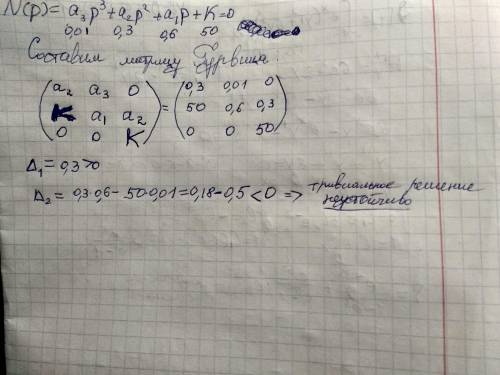 N(p) = a₃p³ + a₂p² + a₁p + K = 0
0,01 0,3 0,6 50
Составим матрицу Гурвица:
(a₂ a₃ 0) = (0,3 0,01 0)
(K a₁ a₂) (50 0,6 0,3)
(0 0 K) (0 0 50)
Δ₁ = 0,3 > 0
Δ₂ = 0,3·0,6 - 50·0,01 = 0,18 - 0,5 < 0 => тривиальное решение
неустойчиво